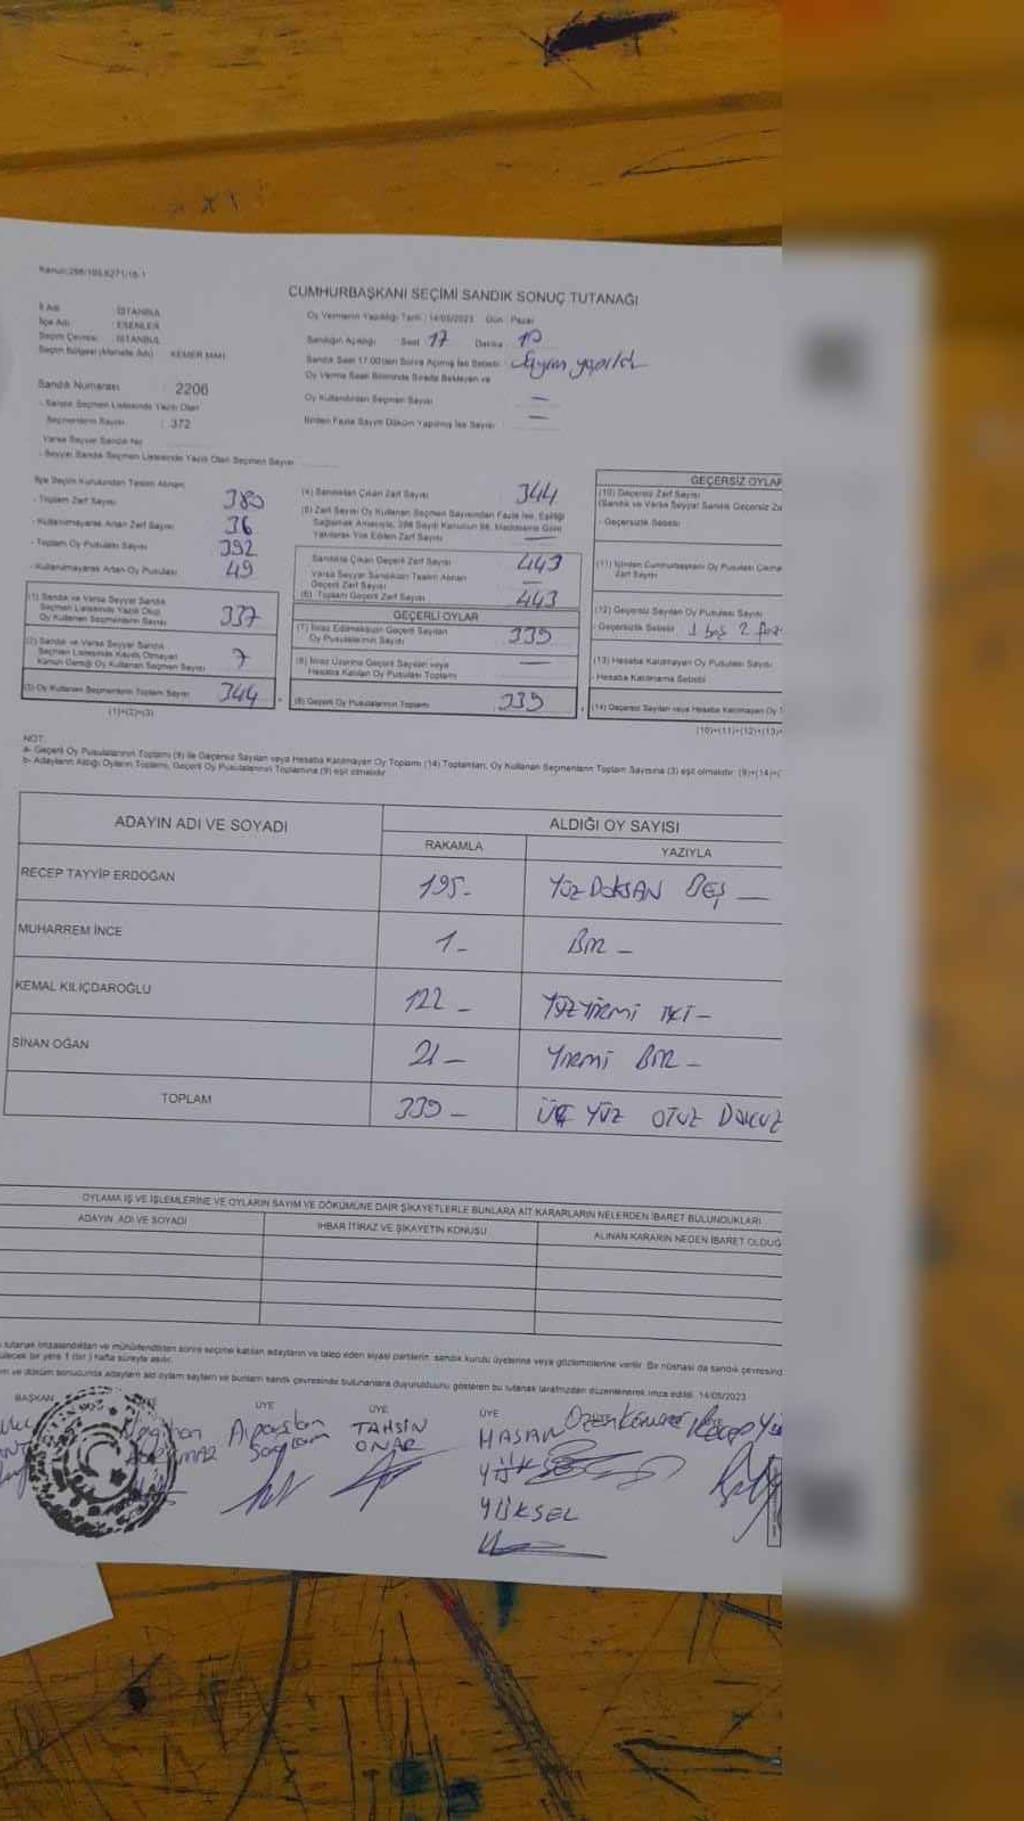 Kanun:298/105,6271/16-1
CUMHURBAŞKANI SEÇİMİ SANDIK SONUÇ TUTANAĞI
İl Adı : İSTANBUL
İlçe Adı : ESENLER
Seçim Çevresi : İSTANBUL
Seçim Bölgesi (Mahalle Adı) : KEMER MAH.
Oy Vermenin Yapıldığı Tarih : 14/05/2023 Gün : Pazar
Sandığın Açıldığı Saat 17 Dakika 10
Sandık Saat 17:00'den Sonra Açılmış İse Sebebi: Sayım yapıldı
Oy Verme Saati Bitiminde Sırada Bekleyen ve
Oy Kullandırılan Seçmen Sayısı —
Birden Fazla Sayım Döküm Yapılmış İse Sayısı —
Sandık Numarası : 2206
- Sandık Seçmen Listesinde Yazılı Olan
Seçmenlerin Sayısı : 372
Varsa Seyyar Sandık No
- Seyyar Sandık Seçmen Listesinde Yazılı Olan Seçmen Sayısı
İlçe Seçim Kurulundan Teslim Alınan
- Toplam Zarf Sayısı 380
- Kullanılmayarak Artan Zarf Sayısı 36
- Toplam Oy Pusulası Sayısı 392
- Kullanılmayarak Artan Oy Pusulası 49
(1) Sandık ve Varsa Seyyar Sandık
Seçmen Listesinde Yazılı Olup
Oy Kullanan Seçmenlerin Sayısı 337
(2) Sandık ve Varsa Seyyar Sandık
Seçmen Listesinde Kayıtlı Olmayan
Kanun Gereği Oy Kullanan Seçmen Sayısı 7
(3) Oy Kullanan Seçmenlerin Toplam Sayısı 344
(1)+(2)=(3)
(4) Sandıktan Çıkan Zarf Sayısı 344
(5) Zarf Sayısı Oy Kullanan Seçmen Sayısından Fazla İse, Eşitliği
Sağlamak Amacıyla, 298 Sayılı Kanunun 98. Maddesine Göre
Yakılarak Yok Edilen Zarf Sayısı —
Sandıkta Çıkan Geçerli Zarf Sayısı 443
Varsa Seyyar Sandıktan Teslim Alınan
Geçerli Zarf Sayısı —
(6) Toplam Geçerli Zarf Sayısı 443
GEÇERLİ OYLAR
(7) İtiraz Edilmeksizin Geçerli Sayılan
Oy Pusulalarının Sayısı 339
(8) İtiraz Üzerine Geçerli Sayılan veya
Hesaba Katılan Oy Pusulası Toplamı —
(9) Geçerli Oy Pusulalarının Toplamı 339
GEÇERSİZ OYLAR
(10) Geçersiz Zarf Sayısı
(Sandık ve Varsa Seyyar Sandık Geçersiz Za
- Geçersizlik Sebebi
(11) İçinden Cumhurbaşkanı Oy Pusulası Çıkma
Zarf Sayısı
(12) Geçersiz Sayılan Oy Pusulası Sayısı
- Geçersizlik Sebebi 1 boş 2
(13) Hesaba Katılmayan Oy Pusulası Sayısı
- Hesaba Katılmama Sebebi
(14) Geçersiz Sayılan veya Hesaba Katılmayan Oy
(10)+(11)+(12)+(13)=
NOT:
a- Geçerli Oy Pusulalarının Toplamı (9) ile Geçersiz Sayılan veya Hesaba Katılmayan Oy Toplamı (14) Toplamları, Oy Kullanan Seçmenlerin Toplam Sayısına (3) eşit olmalıdır. (9)+(14)=(
b- Adayların Aldığı Oyların Toplamı, Geçerli Oy Pusulalarının Toplamına (9) eşit olmalıdır.
ADAYIN ADI VE SOYADI ALDIĞI OY SAYISI
RAKAMLA YAZIYLA
RECEP TAYYİP ERDOĞAN 195- YÜZ DOKSAN BEŞ —
MUHARREM İNCE 1- BİR -
KEMAL KILIÇDAROĞLU 122- YÜZ YİRMİ İKİ -
SİNAN OĞAN 21- YİRMİ BİR -
TOPLAM 339- ÜÇ YÜZ OTUZ DOKUZ
OYLAMA İŞ VE İŞLEMLERİNE VE OYLARIN SAYIM VE DÖKÜMÜNE DAİR ŞİKAYETLERLE BUNLARA AİT KARARLARIN NELERDEN İBARET BULUNDUKLARI
ADAYIN ADI VE SOYADI İHBAR İTİRAZ VE ŞİKAYETİN KONUSU ALINAN KARARIN NEDEN İBARET OLDUĞ
tutanak imzalandıktan ve mühürlendikten sonra seçime katılan adayların ve talep eden siyasi partilerin, sandık kurulu üyelerine veya gözlemcilerine verilir. Bir nüshası da sandık çevresind
ülecek bir yere 1 (bir) hafta süreyle asılır.
m ve döküm sonucunda adayların aldı oyların sayıları ve bunların sandık çevresinde bulunanlara duyurulduunu gösteren bu tutanak tarafımızdan düzenlenerek imza edildi. 14/05/2023
BAŞKAN ÜYE ÜYE ÜYE
Alparslan Sağlam
TAHSİN ONAR
HASAN
YÜKSEL
Recep